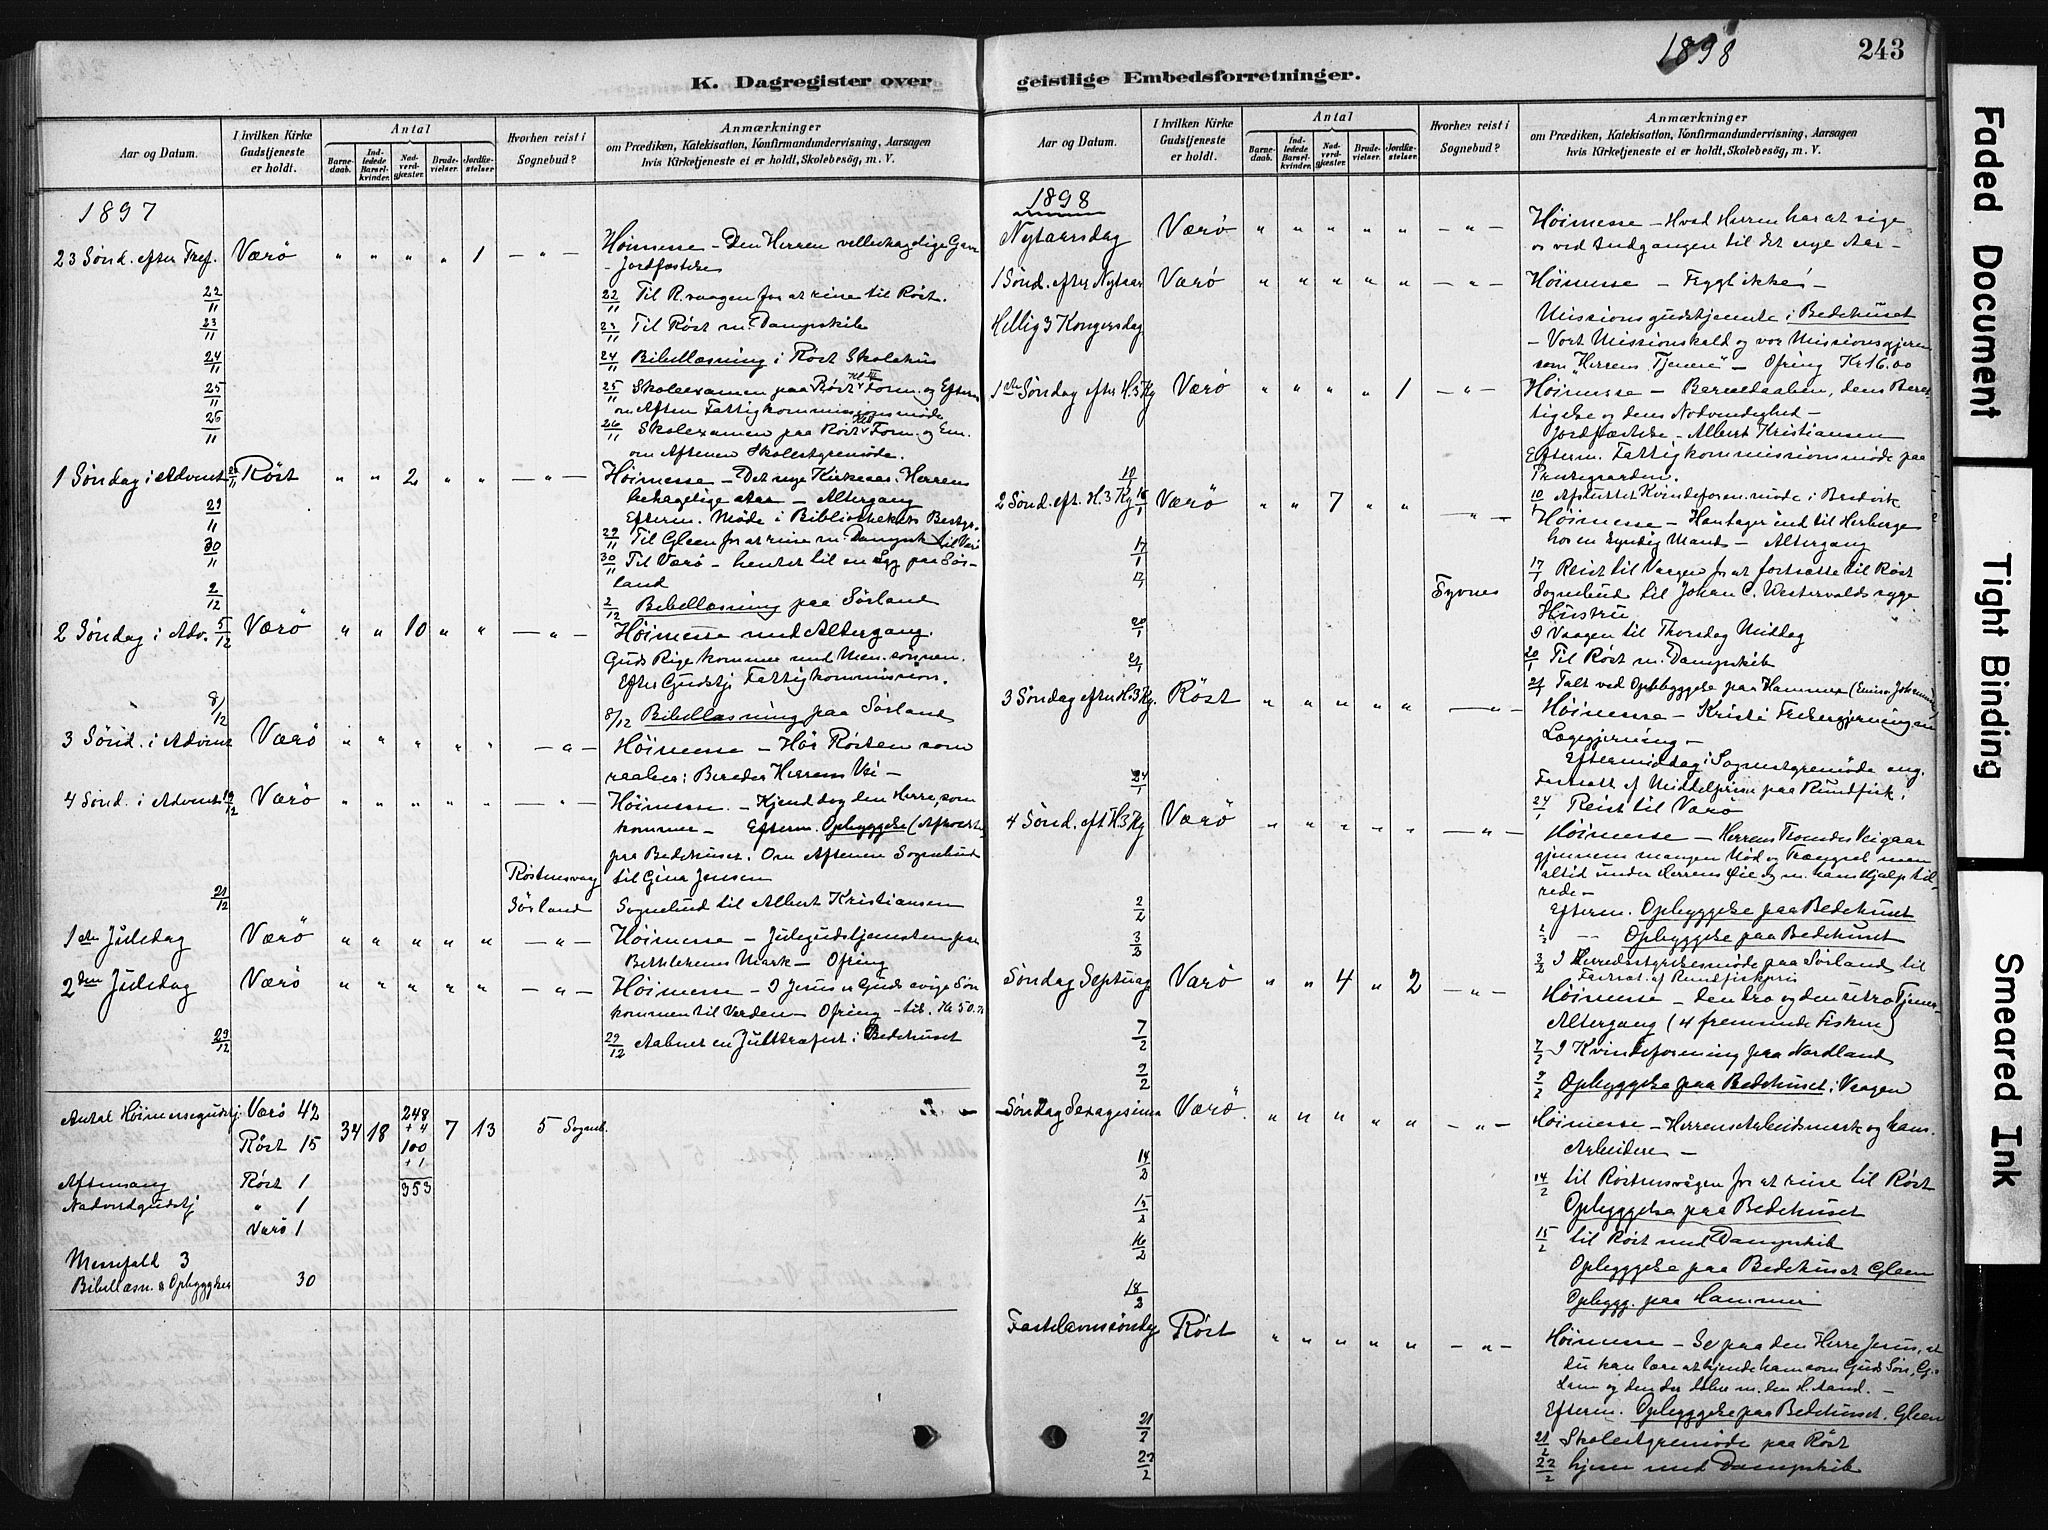 1898
243
K. Dagregister over geistlige Embedsforretninger.
Aar og Datum.
I hvilken Kirke Gudstjeneste er holdt.
Antal
Barnedaab.
Indledede Barselkvinder.
Nadverdgjæster.
Brudevielser.
Jordfæstelser
Hvorhen reist i Sognebud?
Anmærkninger
om Prædiken, Katekisation, Konfirmandundervisning, Aarsagen
hvis Kirketjeneste ei er holdt, Skolebesög, m. V.
1897
23 Sönd. efter Tref. Værö " " " " 1 - " - Höimesse - Den Herren velbehagelige Gave
- Jordfæstelse
22/11 22/11 Til R.vaagen for at reise til Röst.
23/11 23/11 Til Röst m. Dampskib
24/11 24/11 Bibellæsning i Röst Skolehus
25/11 25/11 Skoleexamen paa Röst Form. og Efterm
om Aften Fattigkommissionsmöde
26/11 26/11 Skoleexamen paa Röst Form. og Em.
om Aftenen Skolestyremöde.
1 Söndag i Advent 28/11 Röst " " 2 " " - " - Höimesse - Det nye Kirkeaar. Herrens
behagelige Aar - Altergang
Efterm. Möde i Bibliothekets Bestyr.
29/11 29/11 Til Gleen for at reise m. Dampsk til Værö
30/11 30/11 Til Værö - hentet til en Syg paa Sör-
land
2/12 2/12 Bibellæsning paa Sörland
2 Söndag i Adv. 5/12 Værö " " 10 " " - " - Höimesse med Altergang.
Guds Rige kommer med Men. sönnen.
Efter Gudstj. Fattigkommission.
8/12 8/12 Bibellæsning paa Sörland
3 Sönd. i Advent Værö " " " " " - " - Höimesse - Hör Rösten som
raaber: Bereder Herrens Vei -
4 Sönd. i Advent 19/12 Værö " " " " " - " - Höimesse. - Kjend dog den Herre, som
kommer - Efterm. Opbyggelse
paa Bedehuset. Om Aftenen Sognebud
Röstnesvaag til Gina Jensen
21/12 Sörland Sognebud til Albert Kristiansen
1ste Juledag Værö " " " " " - " - Höimesse - Julegudstjenesten paa
Bethlehems Mark - Ofring
2den Juledag Værö " " " " " - " - Höimesse - I Jesus er Guds evige Sön
kommen til Verden - Ofring
29/12 29/12 Aabnet en Juletræfest i Bedehuset
Antal Höimessegudstj. Værö 42 34 18 248 + 4 7 13 5 Sogneb.
Röst 15 100 + 1
Aftensang Röst 1 353
Nadverdgudstj " 1
Værö 1
Messefald 3
Bibellæsn. & Opbyggelser 30
Aar og Datum.
I hvilken Kirke Gudstjeneste er holdt.
Antal
Barnedaab.
Indledede Barselkvinder.
Nadverdgjæster.
Brudevielser.
Jordfæstelser.
Hvorhen reist i Sognebud?
Anmærkninger
om Prædiken, Katekisation, Konfirmandundervisning, Aarsagen
hvis Kirketjeneste ei er holdt, Skolebesög, m. V.
1898
Nytaarsdag Værö " " " " " - " - Höimesse - Hvad Herren har at sige
os ved Indgangen til det nye Aar -
1 Sönd. efter Nytaar Værö " " " " " - " - Höimesse - Frygt ikke! -
Hellig 3 Kongersdag Missionsgudstjeneste i Bedehuset
- Vort Missionskald og vor Missionsgjerning
som "Herrens Tjener" - Ofring Kr 16.00
1ste Söndag efter H.3Kg Værö " " " " 1 - " - Höimesse - Barnedaaben, dens Beret-
tigelse og dens Nödvendighed -
Jordfæstelse - Albert Kristiansen
Efterm. Fattigkommissionsmöde paa
Prestegaarden.
10/1 10 Afsluttet Kvindeforen. möde i Bredvik
2 Sönd. eft. H.3 Kg 16/1 Værö " " 7 " " - " - Höimesse - Han tager ind til Herberge
hos en syndig Mand - Altergang
17/1 17/1 Reist til Vaagen for at fortsætte til Röst
17/1 Tyvnes Sognebud til Johan C. Westervolds syge
Hustru
I Vaagen til Thorsdag Middag
20/1 20/1 Til Röst m. Dampskib
21/1 21/1 Talt ved Opbyggelse paa Hammer
3 Söndag efter H.3 Kg. Röst " " " " " - " - Höimesse - Kristi Frelsergjerning en
Lægegjerning -
Eftermiddag i Sognestyremöde ang.
Fortsatt af Middelprisen paa Rundfisk.
24/1 24/1 Reist til Værö
4 Sönd. eft H3 Kg Værö " " " " " - " - Höimesse - Herrens Vei gaar
gjennem mangen Nöd og Trængsel men
altid under Herrens Öie og m. hans Hjælp til-
rede -
Efterm. Opbyggelse paa Bedehuset
2/2 2/2 - Opbyggelse paa Bedehuset
3/2 3/2 I Herredsstyrelsesmöde paa Sörland til
Fortsat. af Rundfiskpris
Söndag Septuag Værö " " 4 " 2 - " - Höimesse - Den tro og den utro Tjener -
Altergang (4 fremmede Fiskere)
7/2 7/2 I Kvindeforening paa Nordland
9/2 9/2 Opbyggelse paa Bedehuset i Vaagen
Söndag Sexagesima Værö. " " " " " - " - Höimesse - Herrens Arbeidsmark og hans
Arbeidere -
14/2 14/2 til Röstnesvågen for at reise til Röst
Opbyggelse paa Bedehuset
15/2 15/2 til Röst med Dampskib
16/2 Opbyggelse paa Bedehuset Gleen
18/2 Opbygg. paa Hammer
Fastelavnssöndag Röst " " " " " - " - Höimesse - Se paa den Herre Jesus, at
du kan lære at kjende ham som Guds Sön, G.s
Lam og den der döber m. den H. Aand. -
Efterm. Opbyggelse paa Bedehuset. Gleen
21/2 21/2 Skolestyremöde paa Röst
22/2 22/2 hjem med Dampskib
Faded Document
Tight Binding
Smeared Ink